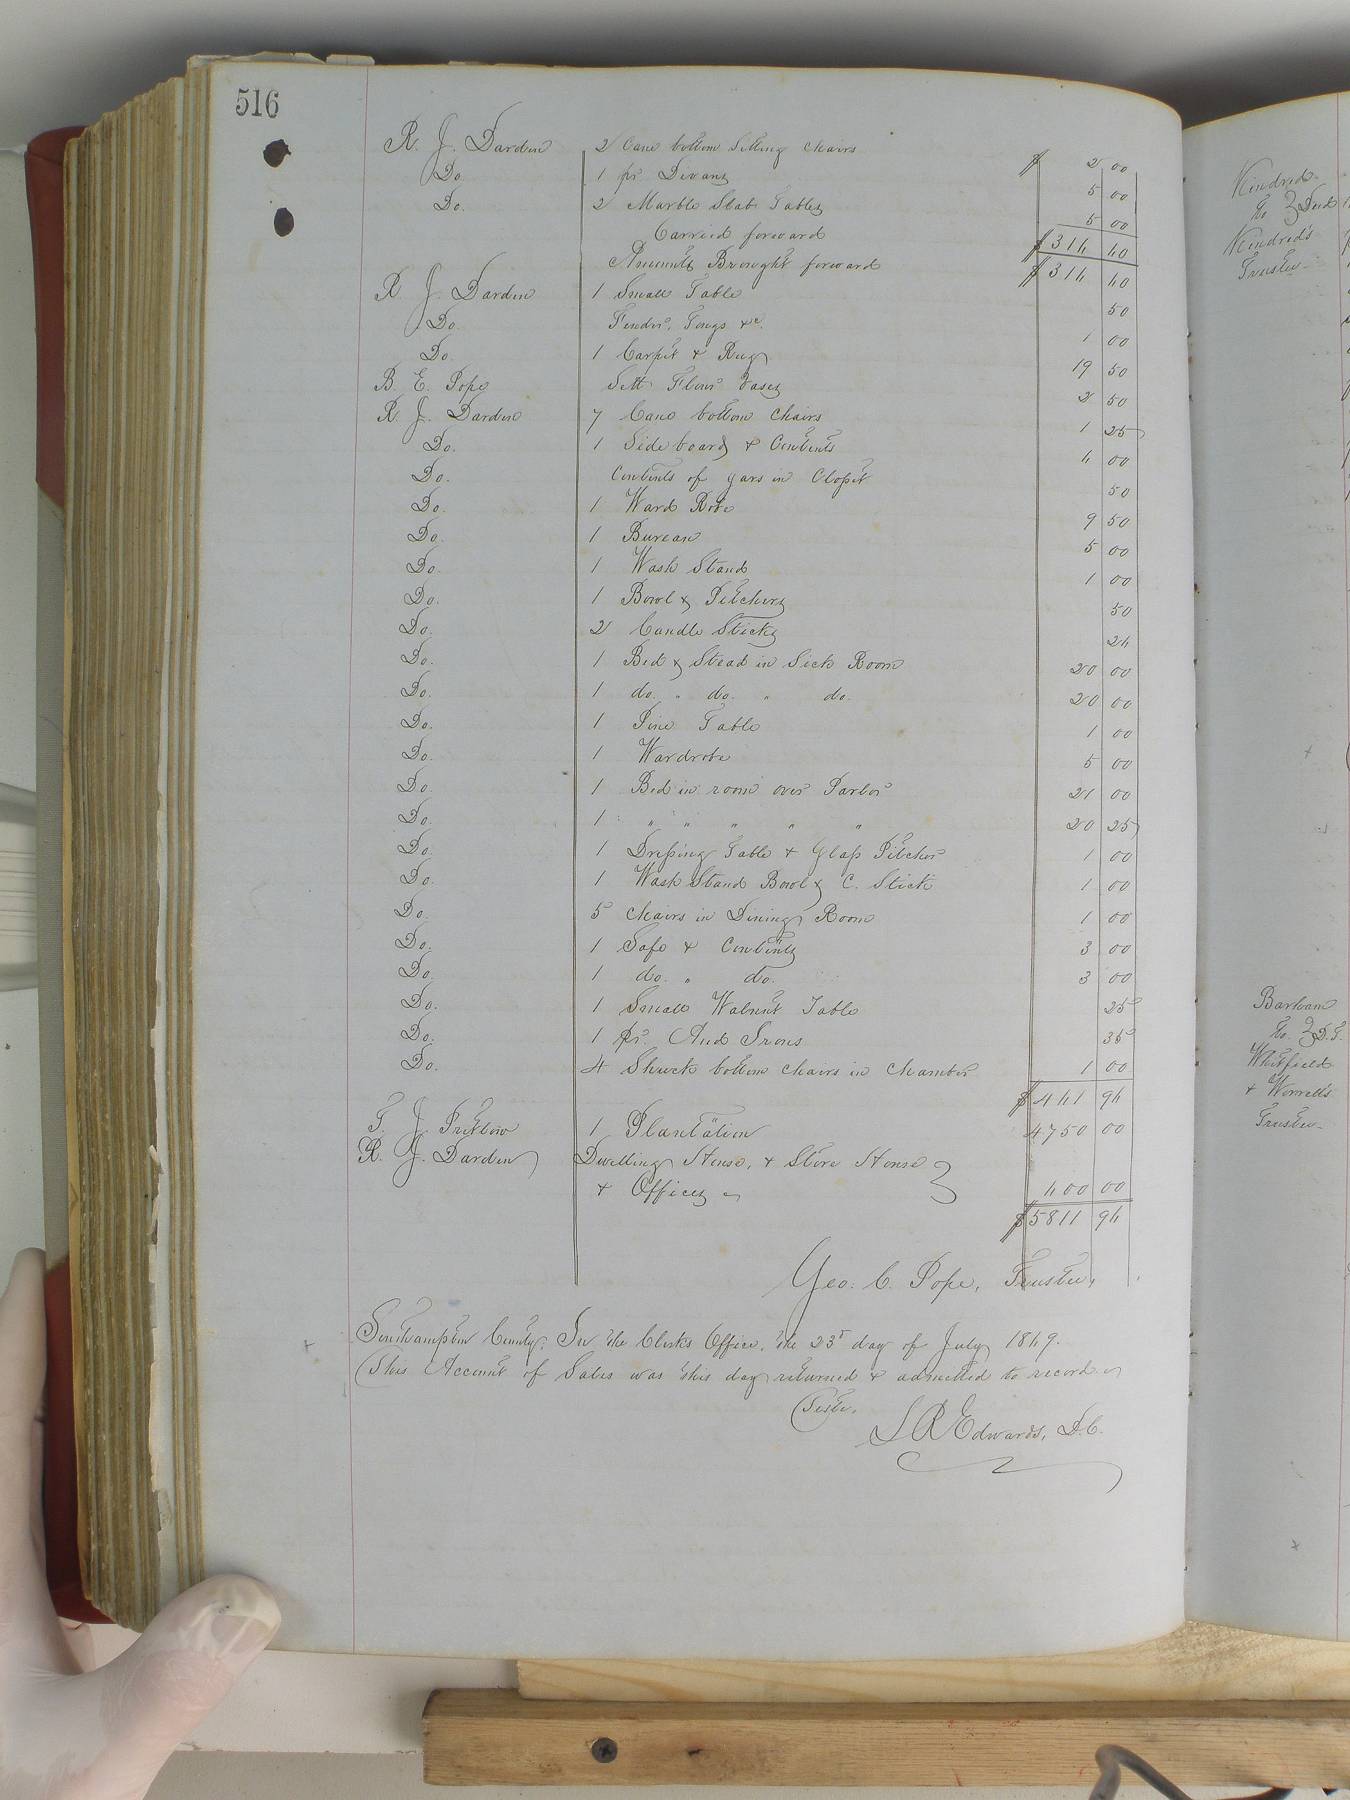 516
R. J. Darden 2 Cane bottom Setting Chairs $ 2 00
Do. 1 pr Divans 5 00
Do. 2 Marble Slab Tables 5 00
Carried forward $316 60
Amounts Brought forward $316 60
R J. Darden 1 Small Table 50
Do. Fender, Tongs &c. 1 00
Do. 1 Carpet & Rug 19 50
B. E. Pope Sett Flour Vases 2 50
R. J. Darden 7 Cane bottom Chairs 1 25
Do. 1 Side board & Contents 6 00
Do. Contents of Jars in Closet 50
Do. 1 Ward Robe 9 50
Do. 1 Bureau 5 00
Do. 1 Wash Stand 1 00
Do. 1 Bowl & Pitchers 50
Do. 2 Candle Sticks 26
Do. 1 Bed & Stead in Sick Room 20 00
Do. 1 do. " do. " do. 20 00
Do. 1 Pine Table 1 00
Do. 1 Wardrobe 5 00
Do. 1 Bed in room over Parlor 21 00
Do. 1 " " " " " 20 25
Do. 1 Dressing Table & Glass Pitcher 1 00
Do. 1 Wash Stand Bowl & C. Stick 1 00
Do. 5 Chairs in Dining Room 1 00
Do. 1 Safe & Contents 3 00
Do. 1 do. " do. 3 00
Do. 1 Small Walnut Table 25
Do. 1 pr. And Irons 35
Do. 4 Shuck bottom Chairs in Chamber 1 00
$461 96
T. J. Pretlow 1 Plantation 4750 00
R. J. Darden Dwelling House, & Store House
& Offices 600 00
$5811 96
Geo. C. Pope, Trustee,
Southampton County: In the Clerks Office, the 23d day of July 1869.
This Account of Sales was this day returned & admitted to record
Teste,
L R Edwards, D.C.
Kindred
To Deed
Kindred's
Trustee
Barham
To D.T.
Whitfield
& Worrell's
Trustee